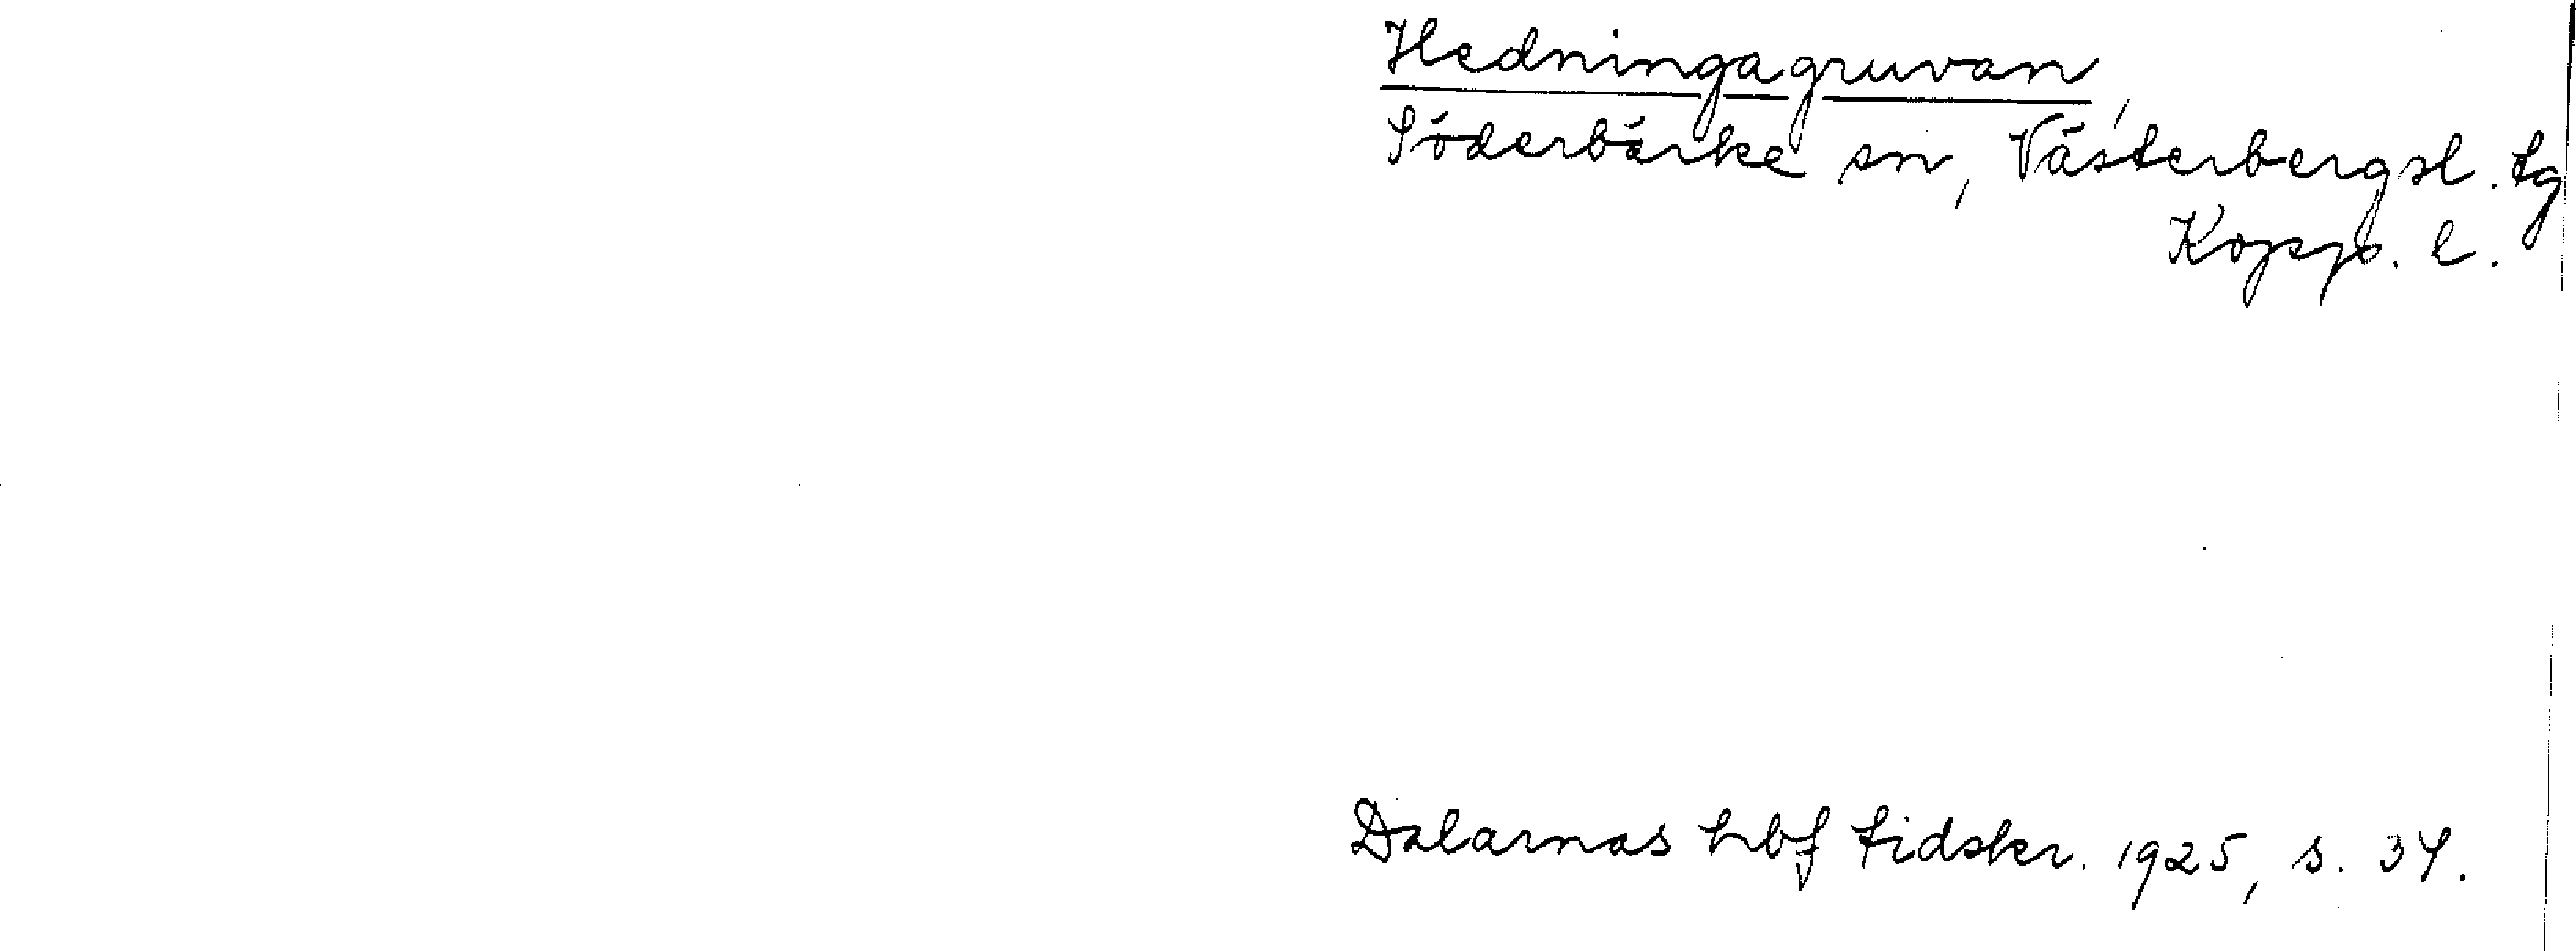 Hedningagruvan,
Söderbärke sn, Västerbergsl. tg
Kopp. l.
Dalarnas hbf tidskr. 1925, s. 34.